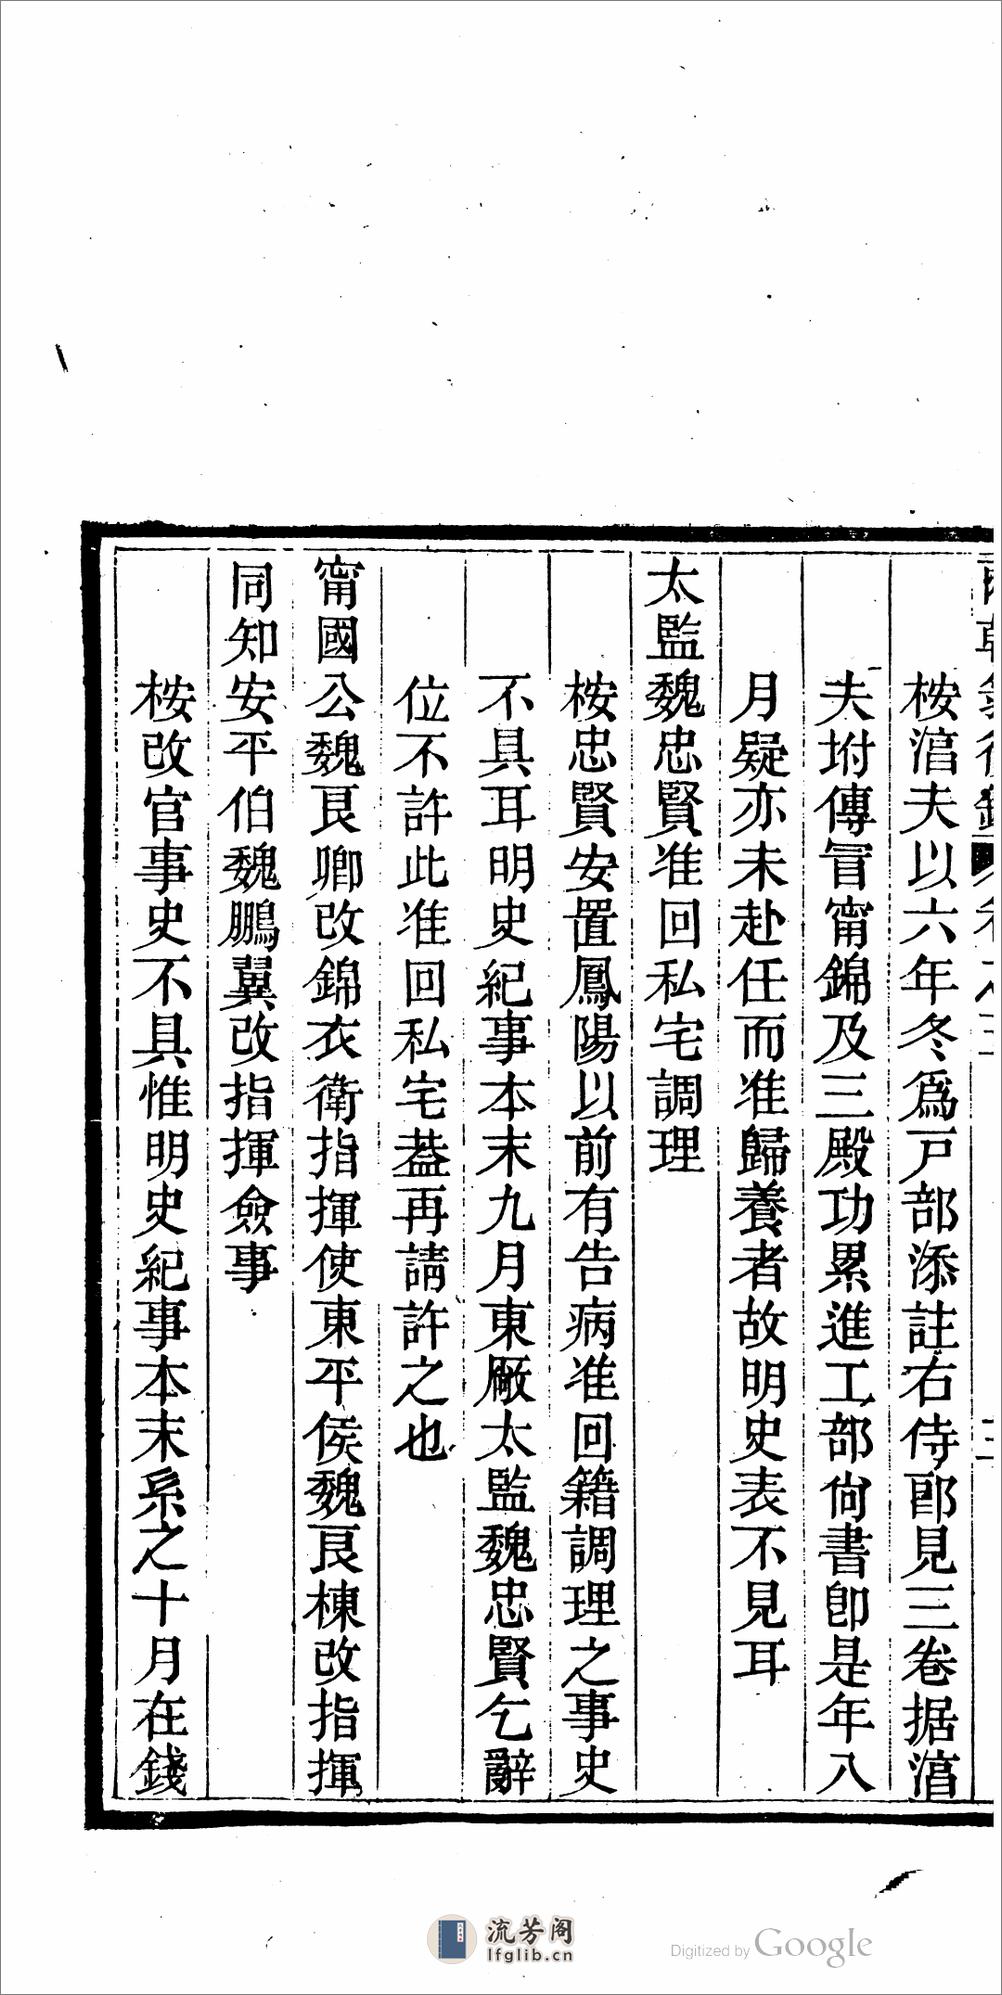 桉㵪夫以六年冬爲戸部添註右侍郎見三卷据㵪
夫坿傳冒甯錦及三殿功累進工部尙書卽是年八
月疑亦未赴任而准歸養者故明史表不見耳
太監魏忠賢准回私宅調理
桉忠賢安置鳳陽以前有告病准回籍調理之事史
不具耳明史紀事本末九月東厰太監魏忠賢乞辭
位不許此准回私宅葢再請許之也
甯國公魏良卿改錦衣衛指揮使東平侯魏良棟改指揮
同知安平伯魏鵬翼改指揮僉事
桉改官事史不具惟明史紀事本末系之十月在錢
流芳阁
lfglib.cn
Digitized by Google